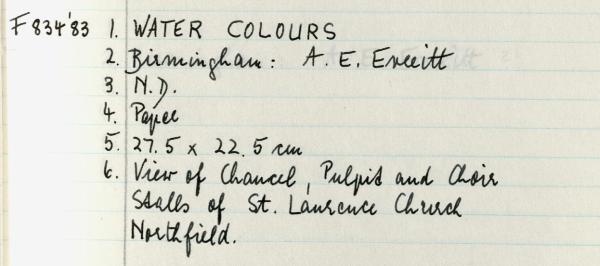 F834'83 1. WATER COLOURS
2. Birmingham: A. E. Everitt
3. N.D.
4. Paper
5. 27.5 x 22.5 cm
6. View of Chancel, Pulpit and Choir
Stalls of St. Laurence Church
Northfield.